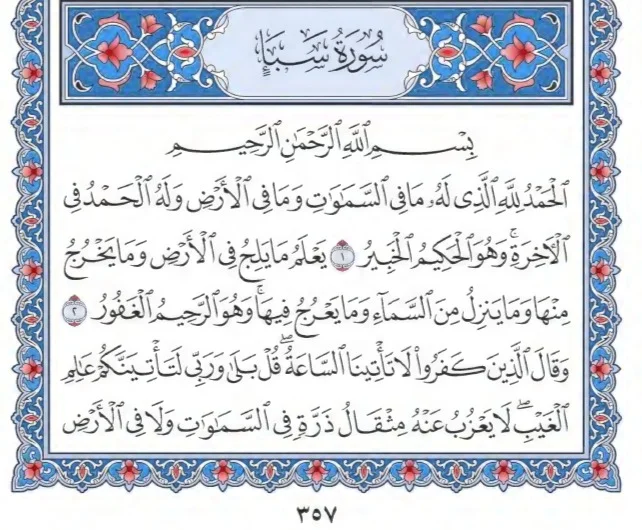 سُورَةُ سَبَإٍ
بِسْمِ ٱللَّهِ ٱلرَّحْمَٰنِ ٱلرَّحِيمِ
ٱلْحَمْدُ لِلَّهِ ٱلَّذِى لَهُۥ مَا فِى ٱلسَّمَٰوَٰتِ وَمَا فِى ٱلْأَرْضِ وَلَهُ ٱلْحَمْدُ فِى
ٱلْءَاخِرَةِۚ وَهُوَ ٱلْحَكِيمُ ٱلْخَبِيرُ ١ يَعْلَمُ مَا يَلِجُ فِى ٱلْأَرْضِ وَمَا يَخْرُجُ
مِنْهَا وَمَا يَنزِلُ مِنَ ٱلسَّمَآءِ وَمَا يَعْرُجُ فِيهَاۚ وَهُوَ ٱلرَّحِيمُ ٱلْغَفُورُ ٢
وَقَالَ ٱلَّذِينَ كَفَرُوا۟ لَا تَأْتِينَا ٱلسَّاعَةُۖ قُلْ بَلَىٰ وَرَبِّى لَتَأْتِيَنَّكُمْ عَٰلِمِ
ٱلْغَيْبِۖ لَا يَعْزُبُ عَنْهُ مِثْقَالُ ذَرَّةٍ فِى ٱلسَّمَٰوَٰتِ وَلَا فِى ٱلْأَرْضِ
٣٥٧